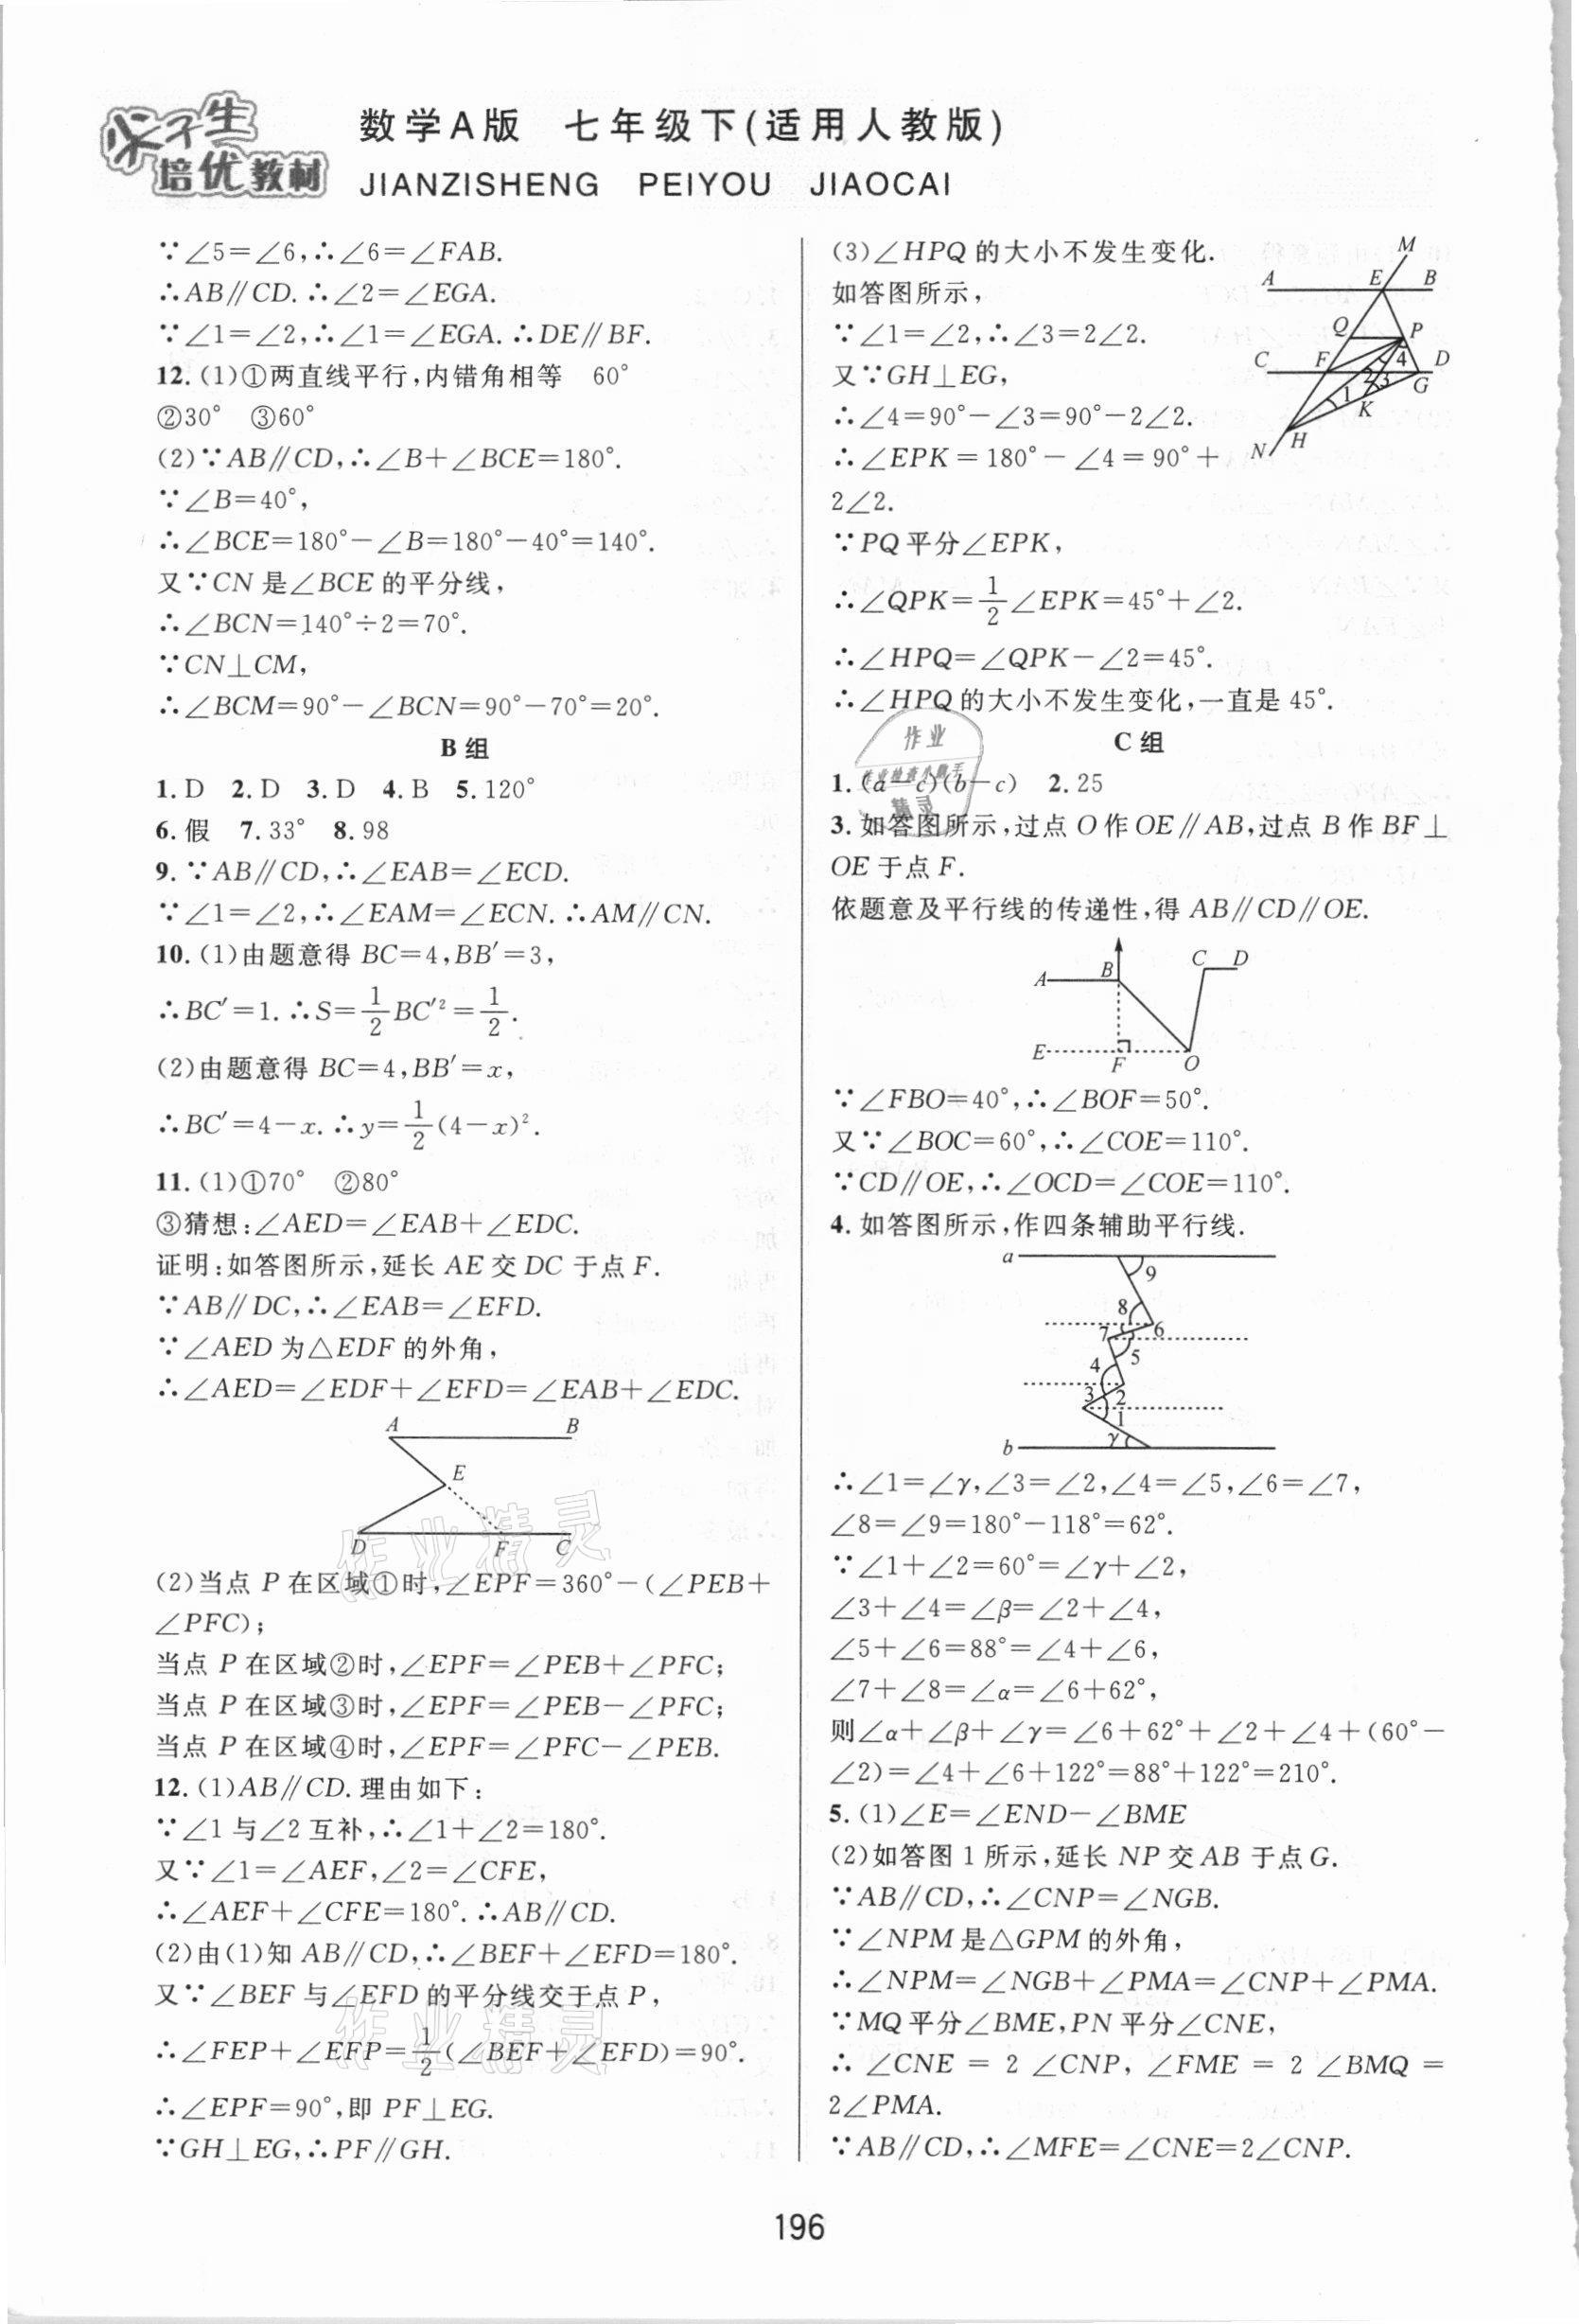 尖子生
培优教材
数学A版 七年级下(适用人教版)
JIANZISHENG PEIYOU JIAOCAI
∵∠5=∠6,∴∠6=∠FAB.
∴AB∥CD.∴∠2=∠EGA.
∵∠1=∠2,∴∠1=∠EGA.∴DE∥BF.
12.(1)①两直线平行,内错角相等 60°
②30° ③60°
(2)∵AB∥CD,∴∠B+∠BCE=180°.
∵∠B=40°,
∴∠BCE=180°-∠B=180°-40°=140°.
又∵CN是∠BCE的平分线,
∴∠BCN=140°÷2=70°.
∵CN⊥CM,
∴∠BCM=90°-∠BCN=90°-70°=20°.
B组
1.D 2.D 3.D 4.B 5.120°
6.假 7.33° 8.98
9.∵AB∥CD,∴∠EAB=∠ECD.
∵∠1=∠2,∴∠EAM=∠ECN.∴AM∥CN.
10.(1)由题意得BC=4,BB′=3,
∴BC′=1.∴S=1/2BC′²=1/2.
(2)由题意得BC=4,BB′=x,
∴BC′=4-x.∴y=1/2(4-x)².
11.(1)①70° ②80°
③猜想:∠AED=∠EAB+∠EDC.
证明:如答图所示,延长AE交DC于点F.
∵AB∥DC,∴∠EAB=∠EFD.
∵∠AED为△EDF的外角,
∴∠AED=∠EDF+∠EFD=∠EAB+∠EDC.
A B
E
D F C
(2)当点P在区域①时,∠EPF=360°-(∠PEB+
∠PFC);
当点P在区域②时,∠EPF=∠PEB+∠PFC;
当点P在区域③时,∠EPF=∠PEB-∠PFC;
当点P在区域④时,∠EPF=∠PFC-∠PEB.
12.(1)AB∥CD.理由如下:
∵∠1与∠2互补,∴∠1+∠2=180°.
又∵∠1=∠AEF,∠2=∠CFE,
∴∠AEF+∠CFE=180°.∴AB∥CD.
(2)由(1)知AB∥CD,∴∠BEF+∠EFD=180°.
又∵∠BEF与∠EFD的平分线交于点P,
∴∠FEP+∠EFP=1/2(∠BEF+∠EFD)=90°.
∴∠EPF=90°,即PF⊥EG.
∵GH⊥EG,∴PF∥GH.
(3)∠HPQ的大小不发生变化.
如答图所示,
∵∠1=∠2,∴∠3=2∠2.
又∵GH⊥EG,
∴∠4=90°-∠3=90°-2∠2.
∴∠EPK=180°-∠4=90°+
2∠2.
M
A E B
Q P
C F 4 D
2 3 G
1 K
N H
∵PQ平分∠EPK,
∴∠QPK=1/2∠EPK=45°+∠2.
∴∠HPQ=∠QPK-∠2=45°.
∴∠HPQ的大小不发生变化,一直是45°.
C组
1.(a-c)(b-c) 2.25
3.如答图所示,过点O作OE∥AB,过点B作BF⊥
OE于点F.
依题意及平行线的传递性,得AB∥CD∥OE.
A B C D
E F O
∵∠FBO=40°,∴∠BOF=50°.
又∵∠BOC=60°,∴∠COE=110°.
∵CD∥OE,∴∠OCD=∠COE=110°.
4.如答图所示,作四条辅助平行线.
a
9
8
7 6
5
4
3 2
1
γ
b
∴∠1=∠γ,∠3=∠2,∠4=∠5,∠6=∠7,
∠8=∠9=180°-118°=62°.
∵∠1+∠2=60°=∠γ+∠2,
∠3+∠4=∠β=∠2+∠4,
∠5+∠6=88°=∠4+∠6,
∠7+∠8=∠α=∠6+62°,
则∠α+∠β+∠γ=∠6+62°+∠2+∠4+(60°-
∠2)=∠4+∠6+122°=88°+122°=210°.
5.(1)∠E=∠END-∠BME
(2)如答图1所示,延长NP交AB于点G.
∵AB∥CD,∴∠CNP=∠NGB.
∵∠NPM是△GPM的外角,
∴∠NPM=∠NGB+∠PMA=∠CNP+∠PMA.
∵MQ平分∠BME,PN平分∠CNE,
∴∠CNE=2∠CNP,∠FME=2∠BMQ=
2∠PMA.
∵AB∥CD,∴∠MFE=∠CNE=2∠CNP.
作业精灵
作业精灵
196